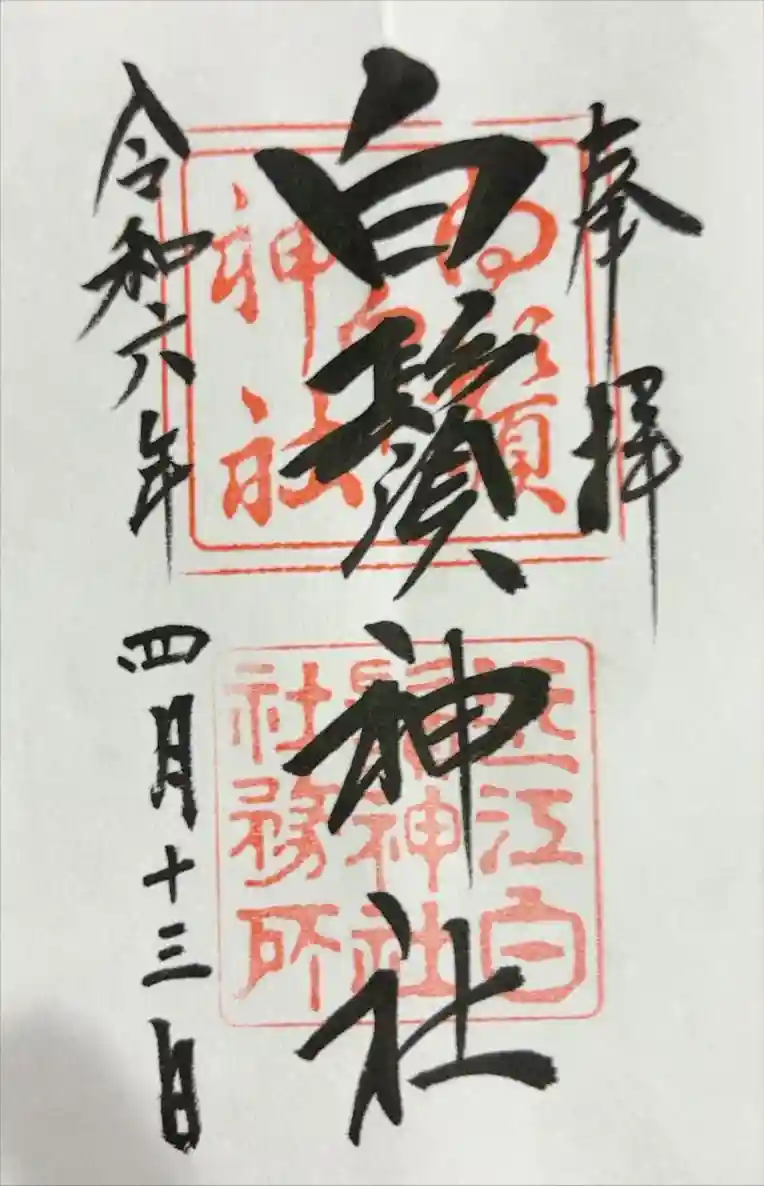 奉拝
白鬚神社
令和六年四月十三日
近江白
鬚神社
社務所